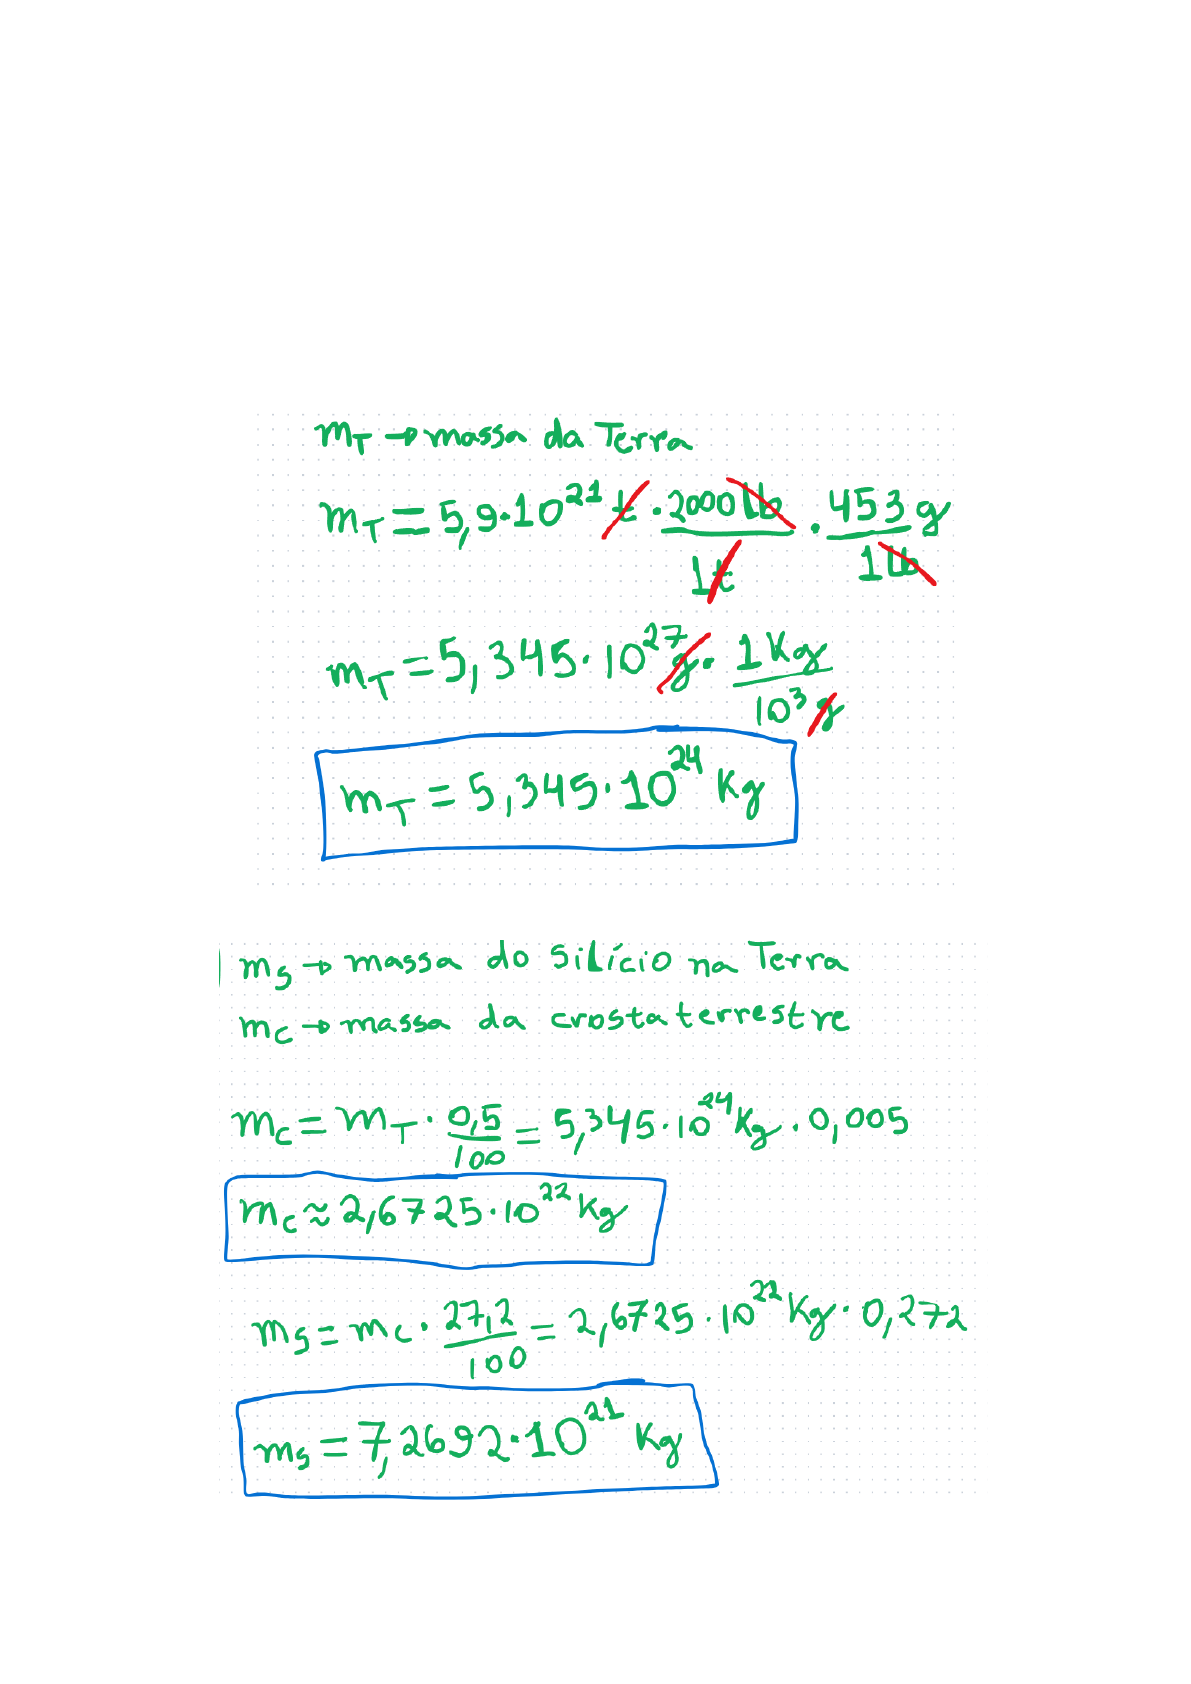 m_T → massa da Terra
m_T = 5,9·10^21 t · 2000 lb / 1t · 453 g / 1 lb
m_T = 5,345·10^27 g · 1 Kg / 10^3 g
m_T = 5,345·10^24 Kg
m_s → massa do silício na Terra
m_c → massa da crosta terrestre
m_c = m_T · 0,5 / 100 = 5,345·10^24 Kg · 0,005
m_c ≈ 2,6725·10^22 Kg
m_s = m_c · 27,2 / 100 = 2,6725·10^22 Kg · 0,272
m_s = 7,2692·10^21 Kg